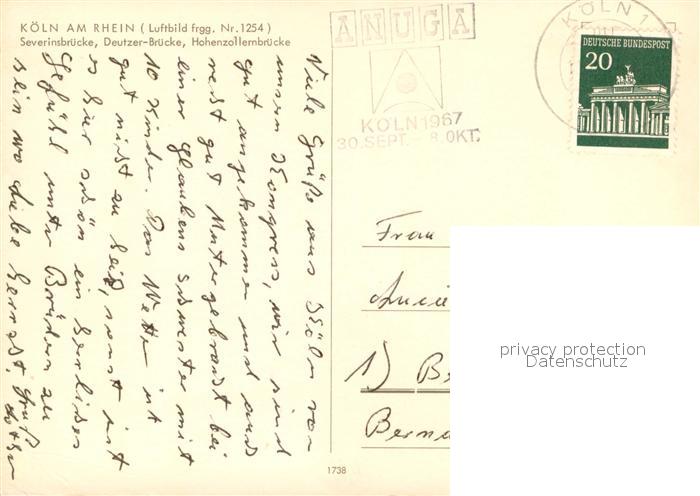 KÖLN AM RHEIN ( Luftbild frgg. Nr. 1254 )
Severinsbrücke, Deutzer-Brücke, Hohenzollernbrücke
ANUGA
KÖLN 1967
30. SEPT. - 8. OKT.
KÖLN 1
DEUTSCHE BUNDESPOST
20
Viele Grüße aus Köln von
unsern Kongress, wir sind
gut angekommen und auch
recht gut Untergebracht bei
einer Glaubensschwester mit
10 Kinder. Das Wetter ist
gut nicht zu heiß, sonst ist
es hier schön ein herrliches
Gefühl unter Brüdern zu
sein wo Liebe herscht. Gruß
Frau
1) B
Berna
privacy protection
Datenschutz
1738